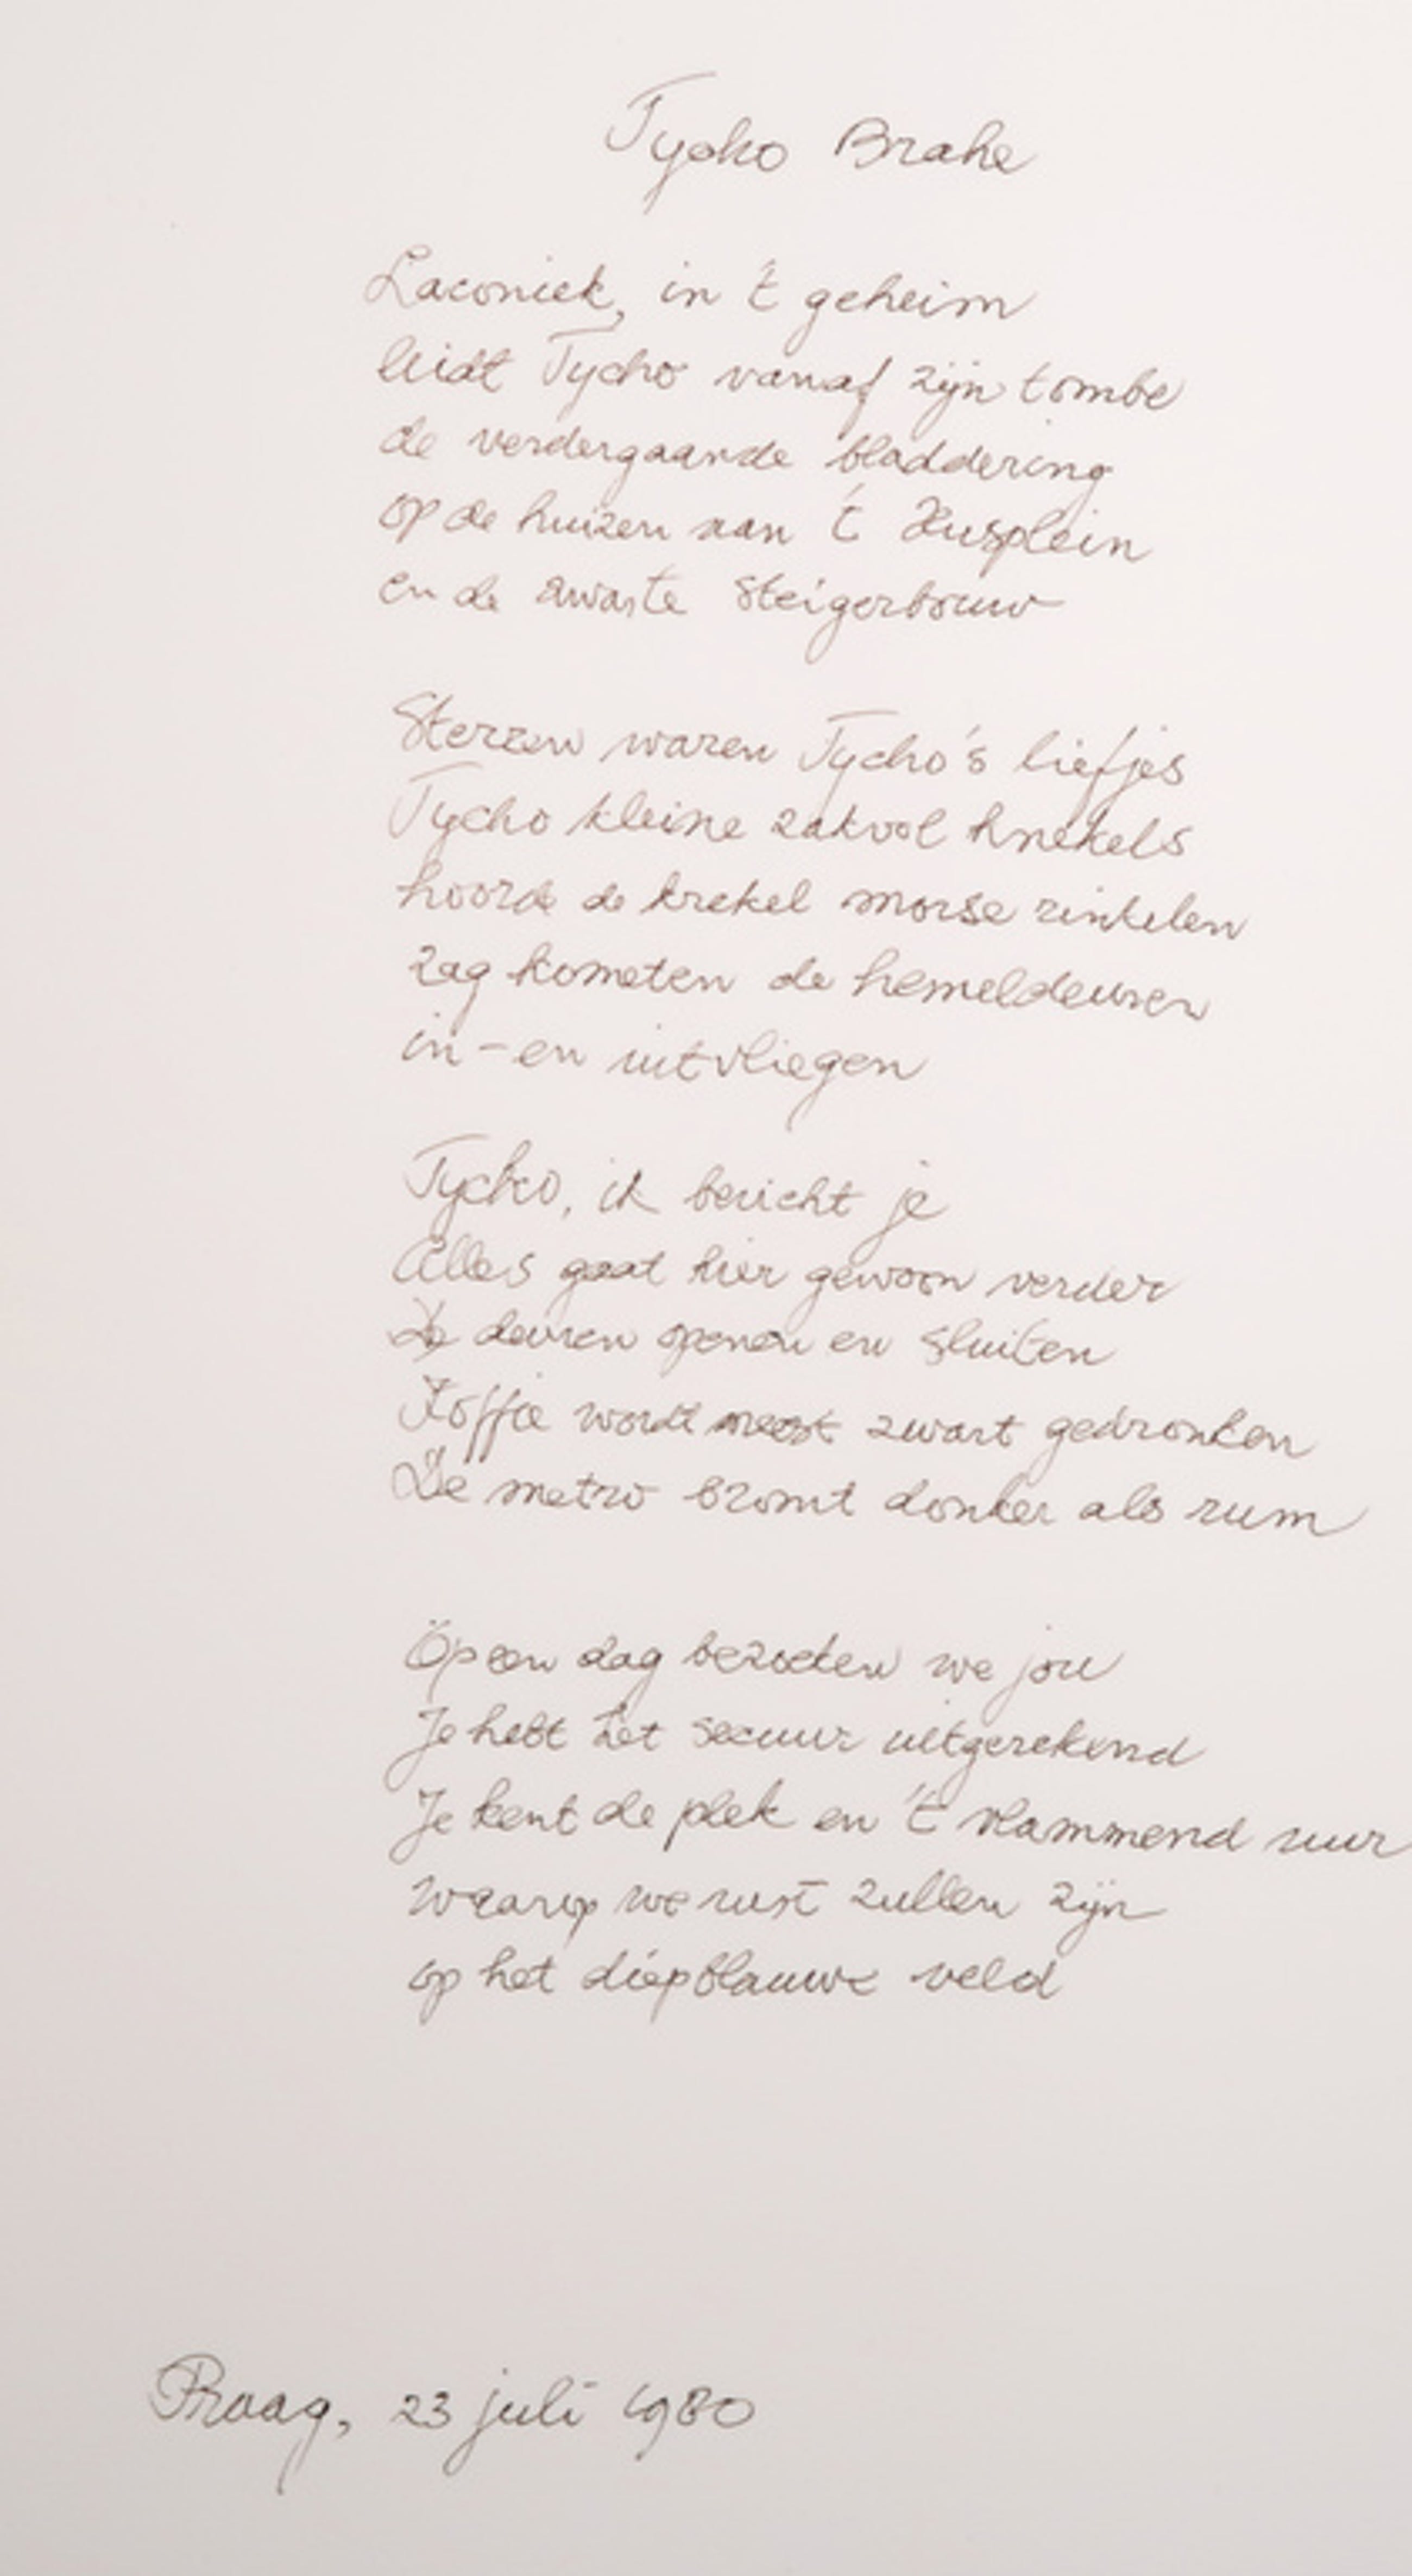 Tycho Brahe
Laconiek, in 't geheim
leidt Tycho vanaf zijn tombe
de verdergaande bladdering
op de huizen aan 't Husplein
en de zwarte steigerbouw
Sterren waren Tycho's liefjes
Tycho kleine zakvol knekels
hoorde de krekel morse rinkelen
zag kometen de hemeldeuren
in-en uitvliegen
Tycho, ik bericht je
Alles gaat hier gewoon verder
De deuren openen en sluiten
Koffie wordt meest zwart gedronken
De metro bromt donker als rum
Op een dag bezoeken we jou
Je hebt het secuur uitgerekend
Je kent de plek en 't vlammend uur
waarop we rust zullen zijn
op het diepblauwe veld
Praag, 23 juli 1980